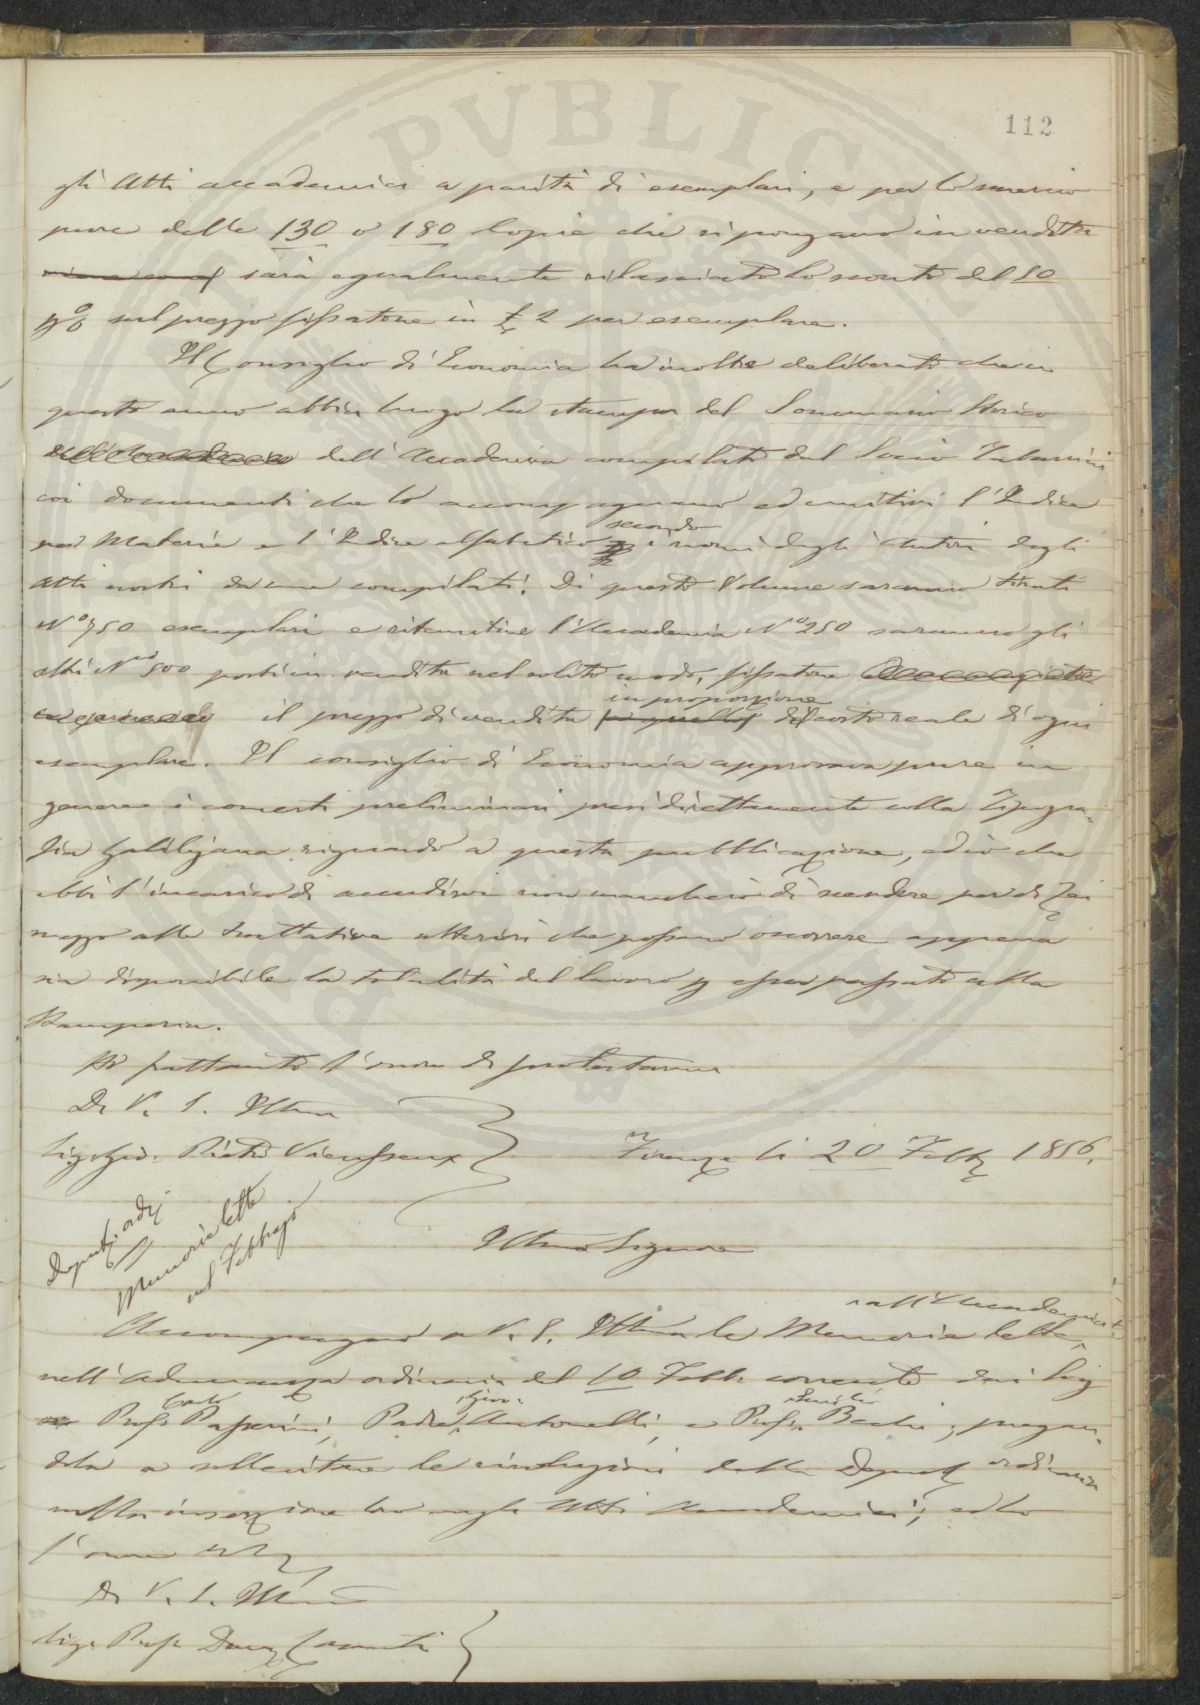 112
gli Atti accademici a parità di esemplari, e per lo smercio
pure delle 130 o 180 Copie che si pongano in vendita
sarà egualmente rilasciato lo sconto del 50
p% sul prezzo fissatone in £ 2 per esemplare.
Il Consiglio di Economia ha inoltre deliberato che in
questo anno abbia luogo la stampa del Sommario Storico
dell'Accademia compilato dal Socio Tabarrini
coi documenti che lo accompagnano ed unitivi l'Indice
per Materie e l'Indice alfabetico secondo i nomi degli Autori degli
Atti nostri da me compilati. Di questo Volume saranno tirati
N.º 750 esemplari e ritenutine l'Accademia N.º 250 saranno gli
altri N.º 500 posti in vendita nel solito modo, fissatone
il prezzo di vendita in proporzione del costo reale di ogni
esemplare. Il consiglio di Economia approvava pure in
genere i concerti preliminari presi direttamente colla Tipogra-
fia Galilejana riguardo a questa pubblicazione, ed io che
ebbi l'incarico di accudirvi non mancherò di scendere per di Lei
mezzo alle trattative ulteriori che possano occorrere appena
sia disponibile la totalità del lavoro p esser passato alla
Stamperia.
Ho frattanto l'onore di protestarmi
Di V. S. Illma
Sig. Gio. Pietro Vieusseux
Firenze li 20 Febb 1856.
Deput. ord.
Memorie lette
nel Febbrajo
Illmo Signore
Accompagno a V. S. Illma le Memorie lette all'Accademia
nell'Adunanza ordinaria del 10 Febb. corrente dai Sigg
Prof. Passerini, Padre Giov. Antonelli, e Prof. Emilio Bechi; pregan-
dola a sollecitare le risoluzioni della Deput ordinaria
sulla inserzione loro negli Atti Accademici; ed ho
l'onore
Di V. S. Illma
Sig. Prof.